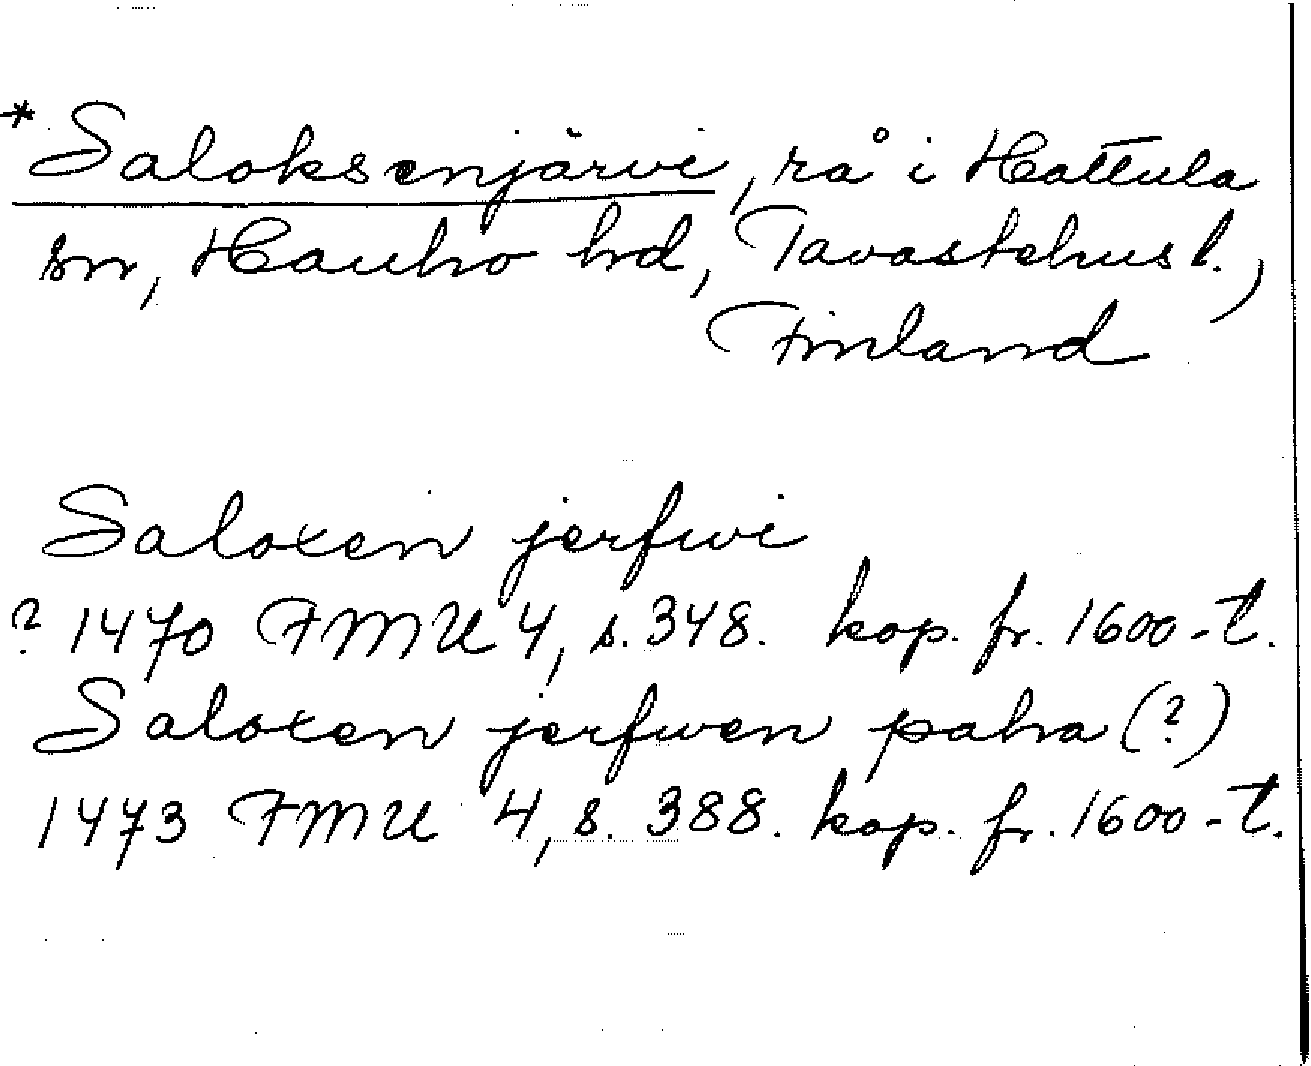 * Saloksenjärvi, rå i Hattula
sn, Hauho hd, Tavastehus l.,
Finland
Saloxen jerfwi
? 1470 FMU 4, s. 348. kop. fr. 1600-t.
Saloxen jerfwen paha (?)
1473 FMU 4, s. 388. kop. fr. 1600-t.